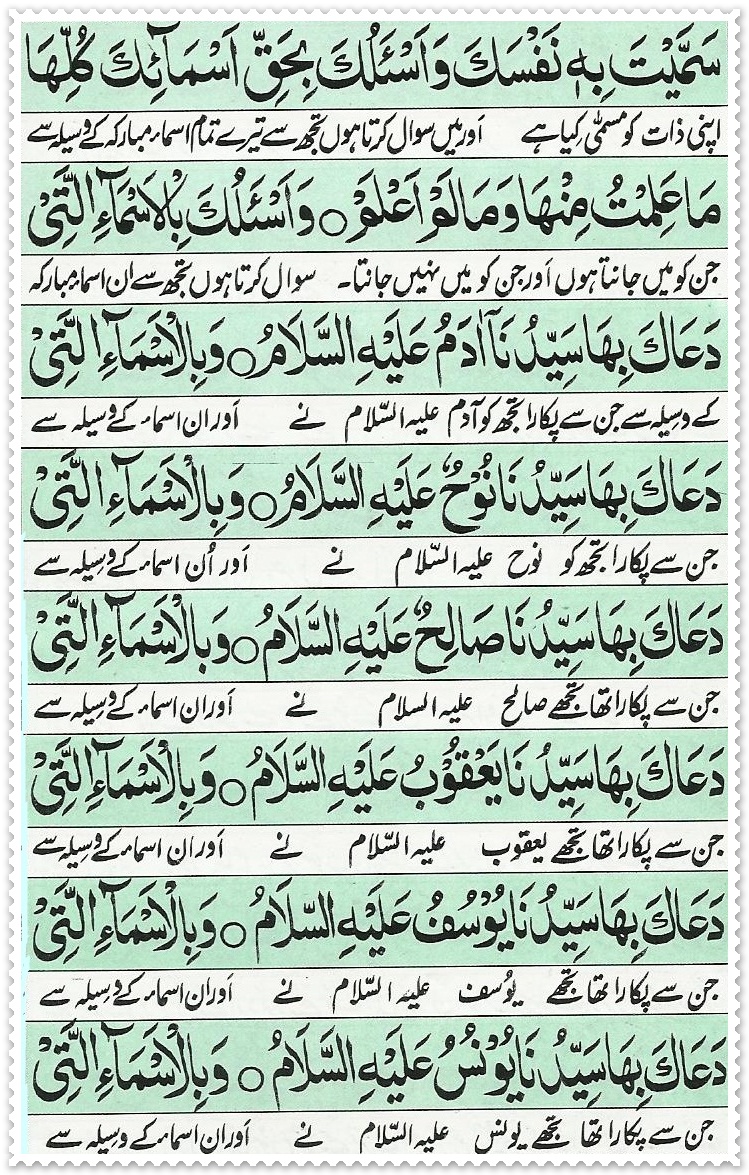 سَمَّيْتَ بِهٖ نَفْسَكَ وَاَسْئَلُكَ بِحَقِّ اَسْمَآئِكَ كُلِّهَا
اپنی ذات کو مسمّٰی کیا ہے اَور میں سوال کرتا ہوں تجھ سے تیرے تمام اسماء مبارکہ کے وسیلہ سے
مَا عَلِمْتُ مِنْهَا وَمَا لَمْ اَعْلَمْ ○ وَاَسْئَلُكَ بِالْاَسْمَآءِ الَّتِیْ
جن کو میں جانتا ہوں اَور جن کو میں نہیں جانتا۔ سوال کرتا ہوں تجھ سے ان اسماء مبارکہ
دَعَاكَ بِهَا سَيِّدُنَآ اٰدَمُ عَلَيْهِ السَّلَامُ ○ وَبِالْاَسْمَآءِ الَّتِیْ
کے وسیلہ سے جن سے پکارا تجھ کو آدم علیہ السّلام نے اَور ان اسماء کے وسیلہ سے
دَعَاكَ بِهَا سَيِّدُنَا نُوْحٌ عَلَيْهِ السَّلَامُ ○ وَبِالْاَسْمَآءِ الَّتِیْ
جن سے پکارا تجھ کو نوح علیہ السّلام نے اَور اُن اسماء کے وسیلہ سے
دَعَاكَ بِهَا سَيِّدُنَا صَالِحٌ عَلَيْهِ السَّلَامُ ○ وَبِالْاَسْمَآءِ الَّتِیْ
جن سے پکارا تھا تجھے صالح علیہ السلام نے اَور ان اسماء کے وسیلہ سے
دَعَاكَ بِهَا سَيِّدُنَا يَعْقُوْبُ عَلَيْهِ السَّلَامُ ○ وَبِالْاَسْمَآءِ الَّتِیْ
جن سے پکارا تھا تجھے یعقوب علیہ السّلام نے اَور ان اسماء کے وسیلہ سے
دَعَاكَ بِهَا سَيِّدُنَا يُوْسُفُ عَلَيْهِ السَّلَامُ ○ وَبِالْاَسْمَآءِ الَّتِیْ
جن سے پکارا تھا تجھے یوُسف علیہ السّلام نے اَور ان اسماء کے وسیلہ سے
دَعَاكَ بِهَا سَيِّدُنَا يُوْنُسُ عَلَيْهِ السَّلَامُ ○ وَبِالْاَسْمَآءِ الَّتِیْ
جن سے پکارا تھا تجھے یونس علیہ السّلام نے اَور ان اسماء کے وسیلہ سے